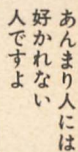 あんまり人には
好かれない
人ですよ